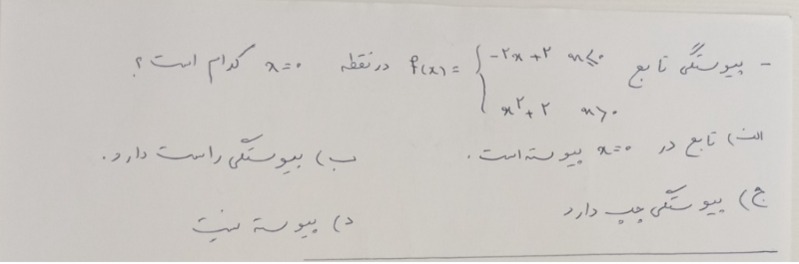 - پیوستگی تابع f(x) = { -۲x + ۲ x ≤ ۰ در نقطه x = ۰ کدام است ؟
x² + ۲ x > ۰
الف) تابع در x = ۰ پیوسته است. ب) پیوستگی راست دارد.
ج) پیوستگی چپ دارد د) پیوسته نیست